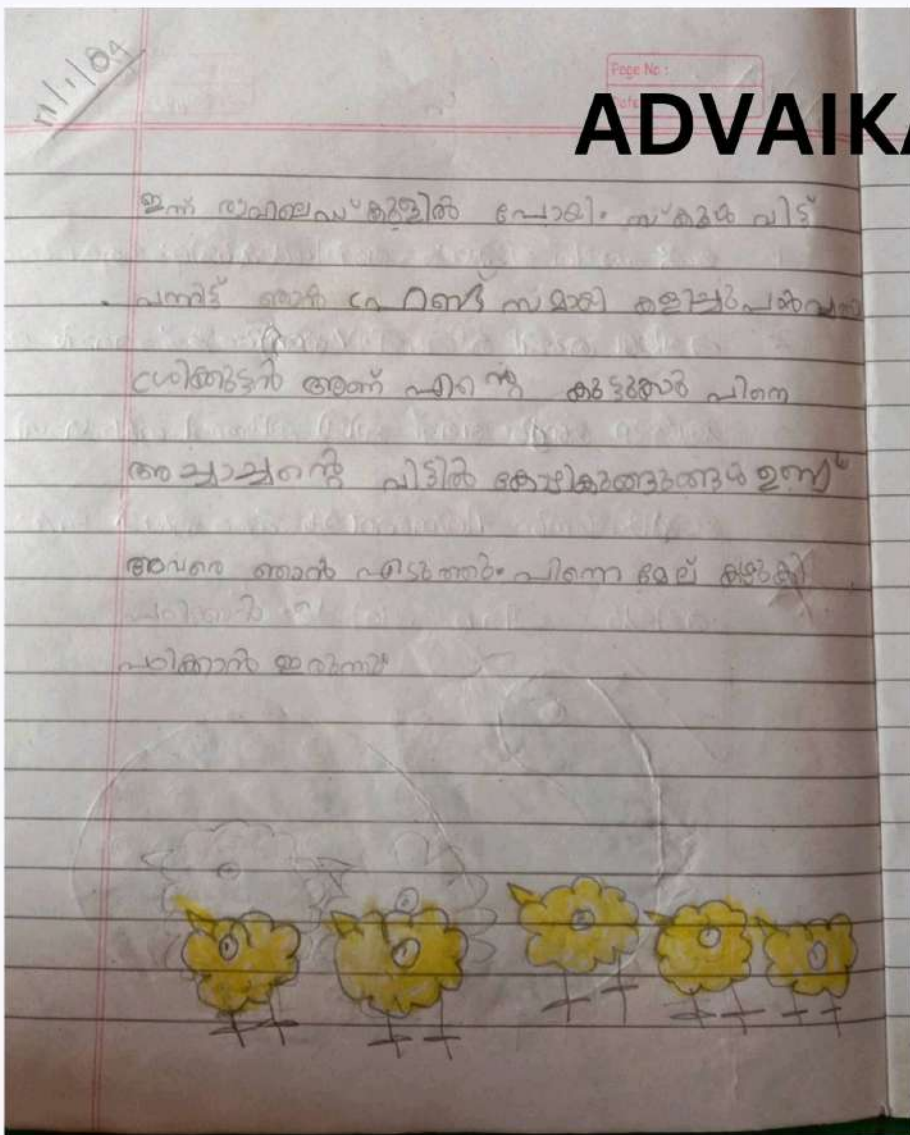 11/1/24
Page No :
Date
ADVAIKA
ഇന്ന് രാവിലെ സ്കുളിൽ പോയി. സ്കുൾ വിട്ട്
വന്നിട്ട് ഞാൻ ഫ്രണ്ട്സ്മായി കളിച്ചു
ആണ് എന്റെ കുട്ടുകാർ പിന്നെ
അച്ചാച്ചന്റെ വിട്ടിൽ കോഴികുഞ്ഞുങ്ങൾ ഉണ്ട്
അവരെ ഞാൻ എടുത്തു. പിന്നെ മേല് കഴുകി
പഠിക്കാൻ ഇരുന്നു